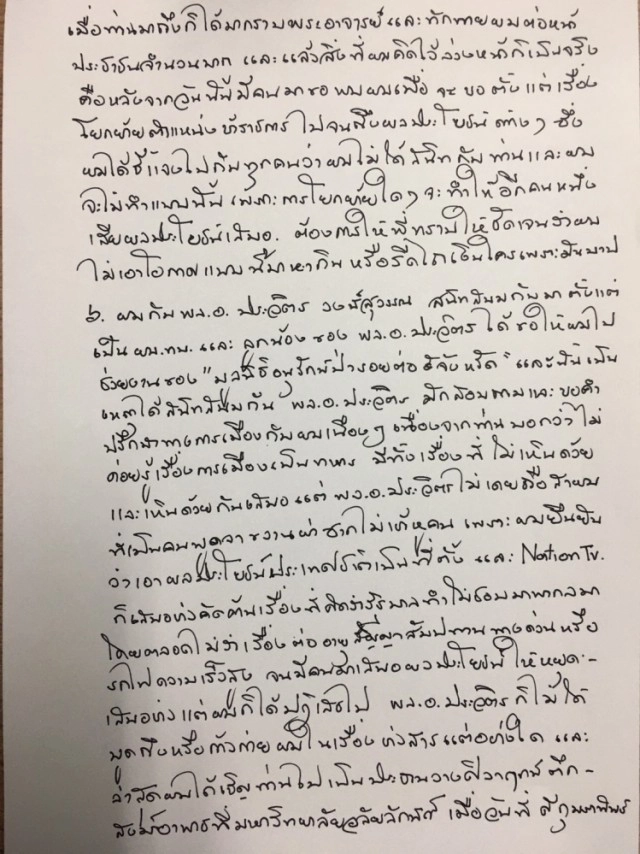 เมื่อท่านมาถึงก็ได้มากราบพระอาจารย์ และทักทายผมต่อหน้า
ประชาชนจำนวนมาก และแล้วสิ่งที่ผมคิดไว้ล่วงหน้าก็เป็นจริง
คือหลังจากวันนั้นมีคนมาขอพบผมเพื่อจะขอตั้งแต่เรื่อง
โยกย้ายตำแหน่งข้าราชการ ไปจนถึงผลประโยชน์ต่างๆ ซึ่ง
ผมได้ชี้แจงไปกับทุกคนว่าผมไม่ได้สนิทกับท่านและผม
จะไม่ทำแบบนั้น เพราะการโยกย้ายใดๆ จะทำให้อีกคนหนึ่ง
เสียผลประโยชน์เสมอ. ต้องการให้พี่ทราบให้ชัดเจนว่าผม
ไม่เอาโอกาสแบบนี้มาหากิน หรือรีดไถเงินใครเพราะมันบาป
๖. ผมกับ พล.อ. ประวิตร วงษ์สุวรรณ สนิทสนมกันมาตั้งแต่
เป็น ผบ.ทบ. และ ลูกน้องของ พล.อ. ประวิตร ได้ขอให้ผมไป
ช่วยงานของ "มูลนิธิอนุรักษ์ป่ารอยต่อ ๕ จังหวัด" และนั่นเป็น
เหตุได้สนิทสนมกัน พล.อ. ประวิตร มักสอบถามและขอคำ
ปรึกษาทางการเมืองกับผมเนืองๆ เนื่องจากท่านบอกว่าไม่
ค่อยรู้เรื่องการเมืองเป็นทหาร มีทั้งเรื่องที่ไม่เห็นด้วย
และเห็นด้วยกันเสมอ แต่ พล.อ. ประวิตรไม่เคยถือสาผม
ที่เป็นคนพูดจาขวานผ่าซากไม่เกรงใจคน เพราะผมยืนยัน
ว่าเอาผลประโยชน์ประเทศชาติเป็นที่ตั้ง และ Nation TV.
ก็เสนอข่าวคัดค้านเรื่องที่คิดว่ารัฐบาลทำไม่ชอบมาพากลมา
โดยตลอด ไม่ว่าเรื่องต่ออายุสัญญาสัมปทานทางด่วนหรือ
รถไฟความเร็วสูง จนมีคนมาเสนอผลประโยชน์ให้หยุด-
เสนอข่าว แต่ผมก็ได้ปฏิเสธไป พล.อ. ประวิตร ก็ไม่ได้
พูดถึงหรือก้าวก่ายผมในเรื่องข่าวสารแต่อย่างใด และ
ล่าสุดผมได้เชิญท่านไปเป็นประธานวางศิลาฤกษ์ตึก-
สงฆ์อาพาธที่มหาวิทยาลัยวลัยลักษณ์ เมื่อวันที่